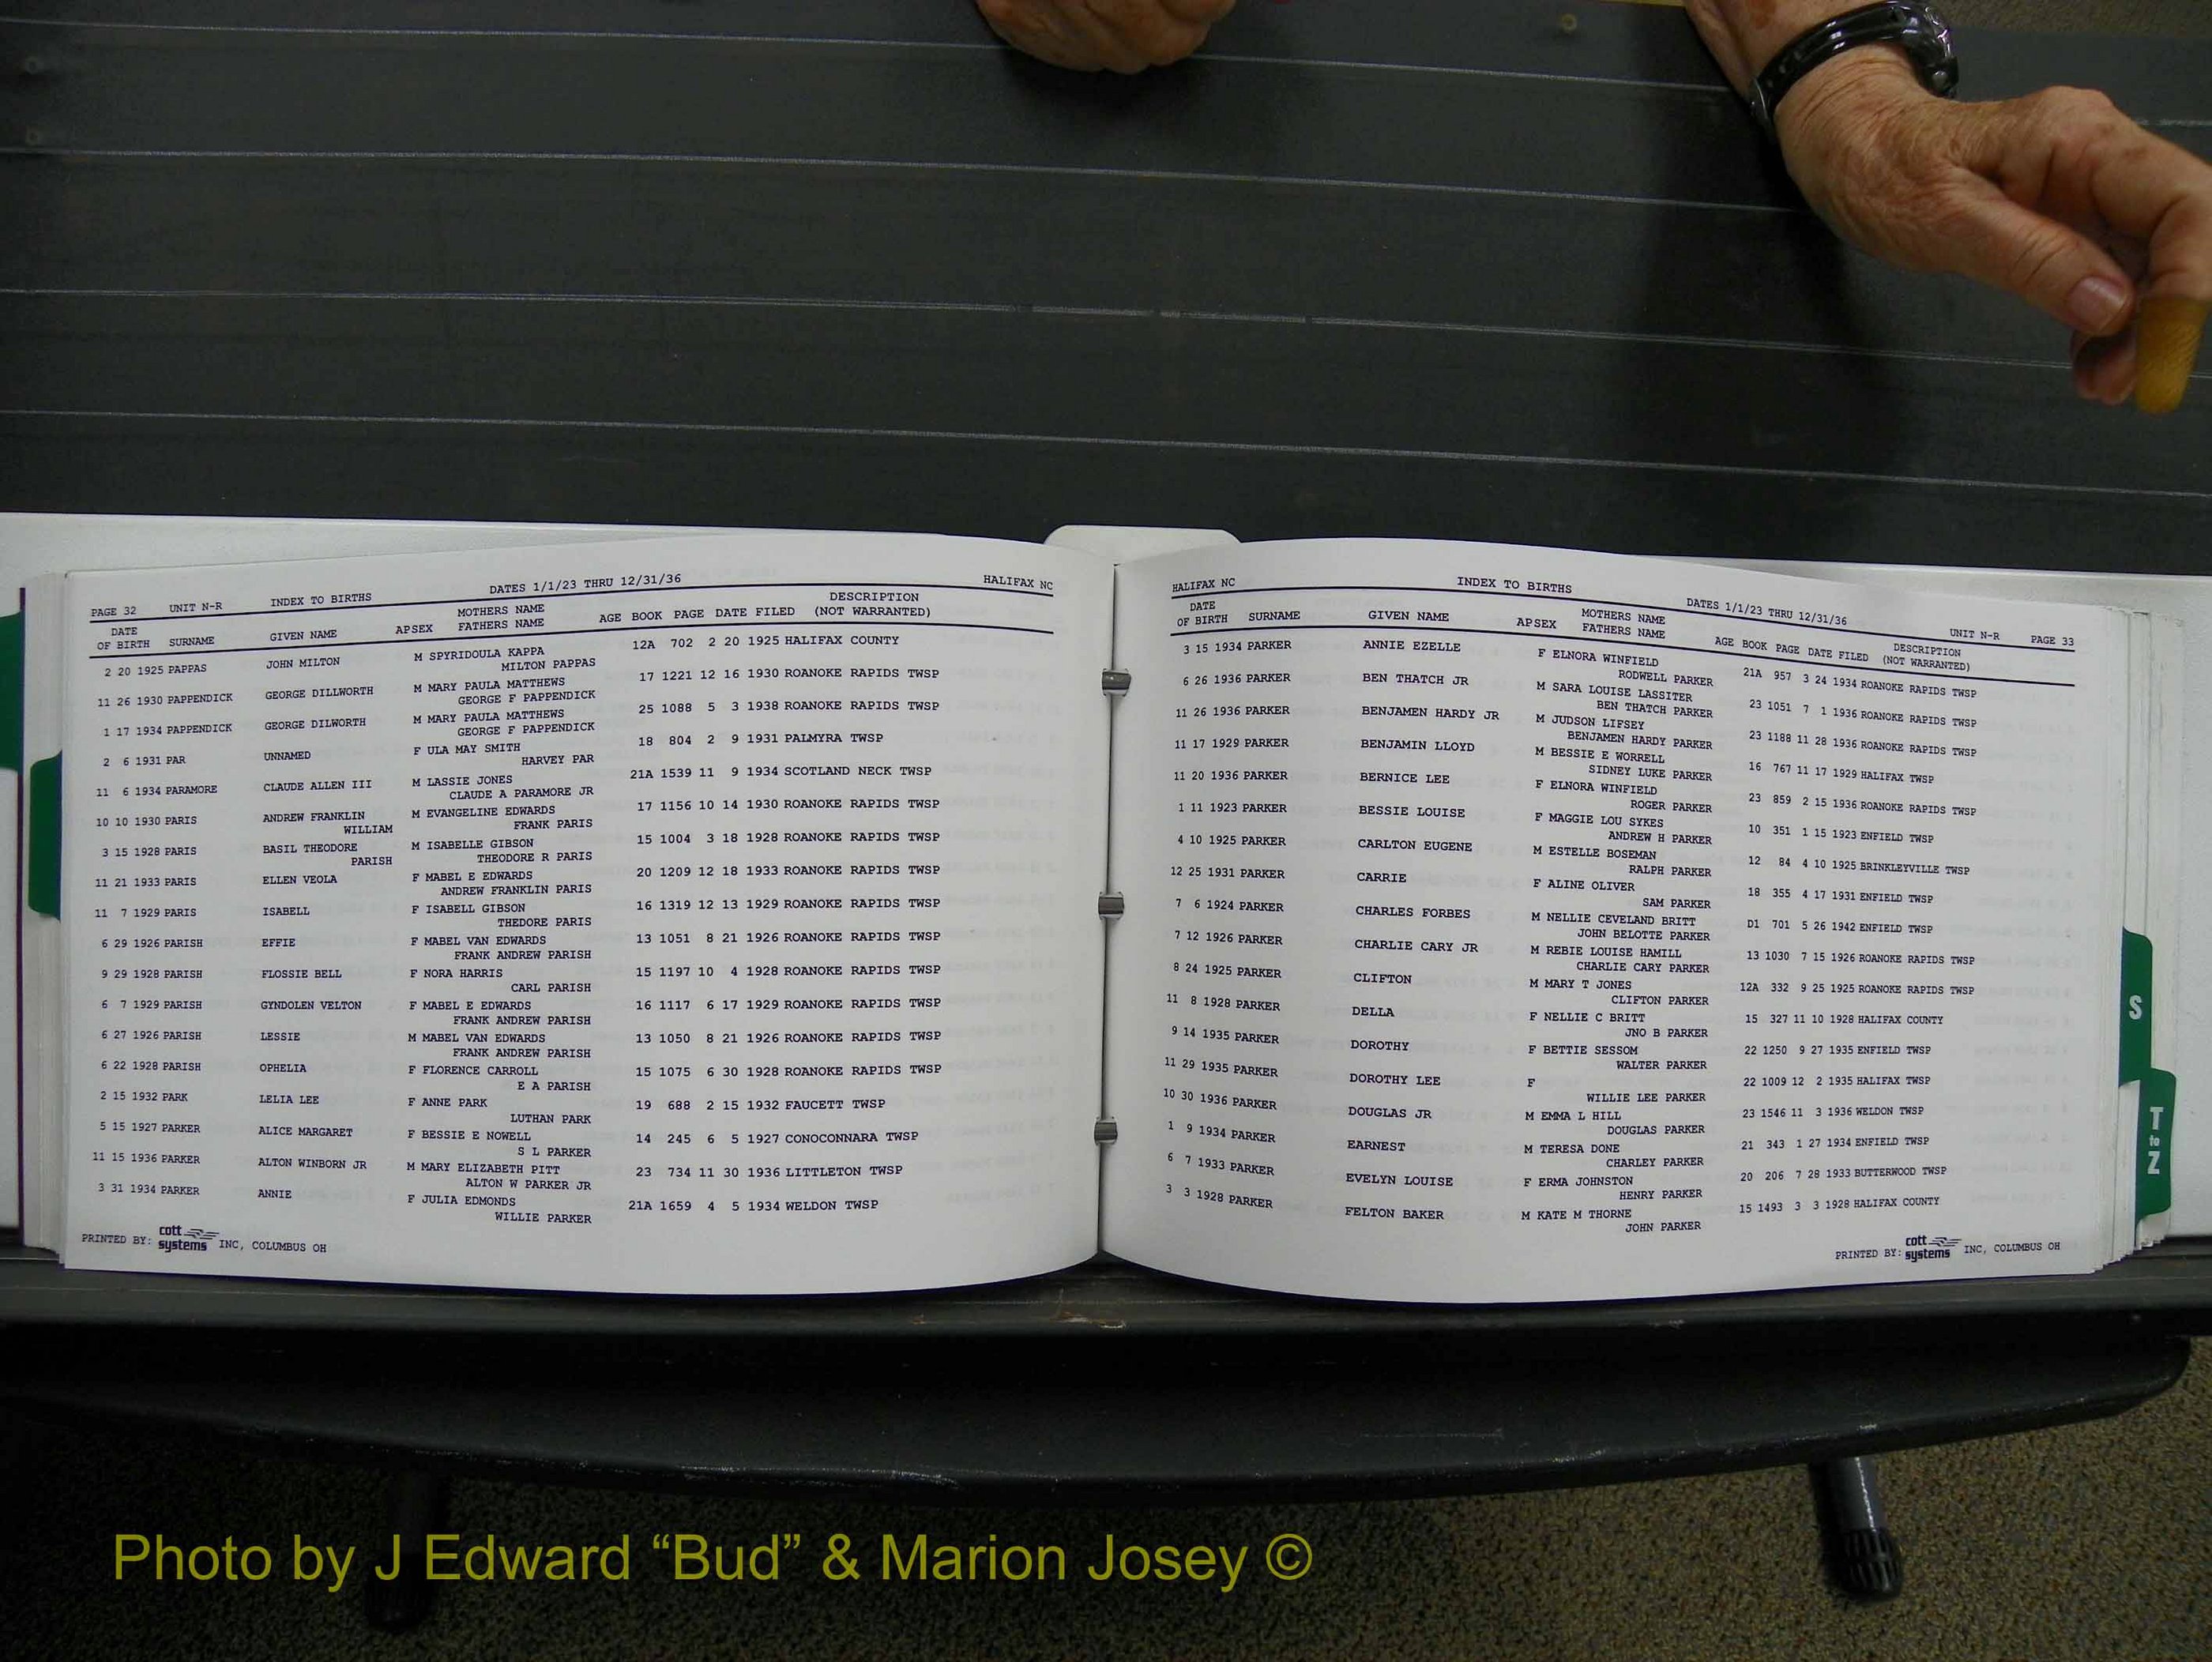 PAGE 32 UNIT N-R INDEX TO BIRTHS DATES 1/1/23 THRU 12/31/36 HALIFAX NC
DATE OF BIRTH SURNAME GIVEN NAME APSEX MOTHERS NAME FATHERS NAME AGE BOOK PAGE DATE FILED DESCRIPTION (NOT WARRANTED)
2 20 1925 PAPPAS JOHN MILTON M SPYRIDOULA KAPPA 12A 702 2 20 1925 HALIFAX COUNTY
MILTON PAPPAS
11 26 1930 PAPPENDICK GEORGE DILLWORTH M MARY PAULA MATTHEWS 17 1221 12 16 1930 ROANOKE RAPIDS TWSP
GEORGE F PAPPENDICK
1 17 1934 PAPPENDICK GEORGE DILWORTH M MARY PAULA MATTHEWS 25 1088 5 3 1938 ROANOKE RAPIDS TWSP
GEORGE F PAPPENDICK
2 6 1931 PAR UNNAMED F ULA MAY SMITH 18 804 2 9 1931 PALMYRA TWSP
HARVEY PAR
11 6 1934 PARAMORE CLAUDE ALLEN III M LASSIE JONES 21A 1539 11 9 1934 SCOTLAND NECK TWSP
CLAUDE A PARAMORE JR
10 10 1930 PARIS ANDREW FRANKLIN M EVANGELINE EDWARDS 17 1156 10 14 1930 ROANOKE RAPIDS TWSP
WILLIAM FRANK PARIS
3 15 1928 PARIS BASIL THEODORE M ISABELLE GIBSON 15 1004 3 18 1928 ROANOKE RAPIDS TWSP
PARISH THEODORE R PARIS
11 21 1933 PARIS ELLEN VEOLA F MABEL E EDWARDS 20 1209 12 18 1933 ROANOKE RAPIDS TWSP
ANDREW FRANKLIN PARIS
11 7 1929 PARIS ISABELL F ISABELL GIBSON 16 1319 12 13 1929 ROANOKE RAPIDS TWSP
THEDORE PARIS
6 29 1926 PARISH EFFIE F MABEL VAN EDWARDS 13 1051 8 21 1926 ROANOKE RAPIDS TWSP
FRANK ANDREW PARISH
9 29 1928 PARISH FLOSSIE BELL F NORA HARRIS 15 1197 10 4 1928 ROANOKE RAPIDS TWSP
CARL PARISH
6 7 1929 PARISH GYNDOLEN VELTON F MABEL E EDWARDS 16 1117 6 17 1929 ROANOKE RAPIDS TWSP
FRANK ANDREW PARISH
6 27 1926 PARISH LESSIE M MABEL VAN EDWARDS 13 1050 8 21 1926 ROANOKE RAPIDS TWSP
FRANK ANDREW PARISH
6 22 1928 PARISH OPHELIA F FLORENCE CARROLL 15 1075 6 30 1928 ROANOKE RAPIDS TWSP
E A PARISH
2 15 1932 PARK LELIA LEE F ANNE PARK 19 688 2 15 1932 FAUCETT TWSP
LUTHAN PARK
5 15 1927 PARKER ALICE MARGARET F BESSIE E NOWELL 14 245 6 5 1927 CONOCONNARA TWSP
S L PARKER
11 15 1936 PARKER ALTON WINBORN JR M MARY ELIZABETH PITT 23 734 11 30 1936 LITTLETON TWSP
ALTON W PARKER JR
3 31 1934 PARKER ANNIE F JULIA EDMONDS 21A 1659 4 5 1934 WELDON TWSP
WILLIE PARKER
PRINTED BY: cott systems INC, COLUMBUS OH
HALIFAX NC INDEX TO BIRTHS DATES 1/1/23 THRU 12/31/36 UNIT N-R PAGE 33
DATE OF BIRTH SURNAME GIVEN NAME APSEX MOTHERS NAME FATHERS NAME AGE BOOK PAGE DATE FILED DESCRIPTION (NOT WARRANTED)
3 15 1934 PARKER ANNIE EZELLE F ELNORA WINFIELD 21A 957 3 24 1934 ROANOKE RAPIDS TWSP
RODWELL PARKER
6 26 1936 PARKER BEN THATCH JR M SARA LOUISE LASSITER 23 1051 7 1 1936 ROANOKE RAPIDS TWSP
BEN THATCH PARKER
11 26 1936 PARKER BENJAMEN HARDY JR M JUDSON LIFSEY 23 1188 11 28 1936 ROANOKE RAPIDS TWSP
BENJAMEN HARDY PARKER
11 17 1929 PARKER BENJAMIN LLOYD M BESSIE E WORRELL 16 767 11 17 1929 HALIFAX TWSP
SIDNEY LUKE PARKER
11 20 1936 PARKER BERNICE LEE F ELNORA WINFIELD 23 859 2 15 1936 ROANOKE RAPIDS TWSP
ROGER PARKER
1 11 1923 PARKER BESSIE LOUISE F MAGGIE LOU SYKES 10 351 1 15 1923 ENFIELD TWSP
ANDREW H PARKER
4 10 1925 PARKER CARLTON EUGENE M ESTELLE BOSEMAN 12 84 4 10 1925 BRINKLEYVILLE TWSP
RALPH PARKER
12 25 1931 PARKER CARRIE F ALINE OLIVER 18 355 4 17 1931 ENFIELD TWSP
SAM PARKER
7 6 1924 PARKER CHARLES FORBES M NELLIE CEVELAND BRITT D1 701 5 26 1942 ENFIELD TWSP
JOHN BELOTTE PARKER
7 12 1926 PARKER CHARLIE CARY JR M REBIE LOUISE HAMILL 13 1030 7 15 1926 ROANOKE RAPIDS TWSP
CHARLIE CARY PARKER
8 24 1925 PARKER CLIFTON M MARY T JONES 12A 332 9 25 1925 ROANOKE RAPIDS TWSP
CLIFTON PARKER
11 8 1928 PARKER DELLA F NELLIE C BRITT 15 327 11 10 1928 HALIFAX COUNTY
JNO B PARKER
9 14 1935 PARKER DOROTHY F BETTIE SESSOM 22 1250 9 27 1935 ENFIELD TWSP
WALTER PARKER
11 29 1935 PARKER DOROTHY LEE F 22 1009 12 2 1935 HALIFAX TWSP
WILLIE LEE PARKER
10 30 1936 PARKER DOUGLAS JR M EMMA L HILL 23 1546 11 3 1936 WELDON TWSP
DOUGLAS PARKER
1 9 1934 PARKER EARNEST M TERESA DONE 21 343 1 27 1934 ENFIELD TWSP
CHARLEY PARKER
6 7 1933 PARKER EVELYN LOUISE F ERMA JOHNSTON 20 206 7 28 1933 BUTTERWOOD TWSP
HENRY PARKER
3 3 1928 PARKER FELTON BAKER M KATE M THORNE 15 1493 3 3 1928 HALIFAX COUNTY
JOHN PARKER
PRINTED BY: cott systems INC, COLUMBUS OH
S
T
to
Z
Photo by J Edward “Bud” & Marion Josey ©